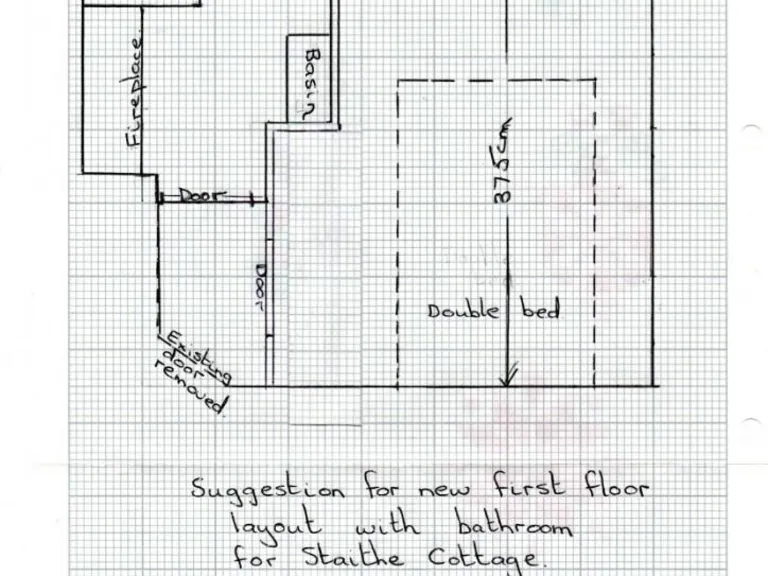 Fireplace.
Basin
Door
375cm
Door
Double bed
Existing
door
removed.
Suggestion for new first floor
layout with bathroom
for Staithe Cottage.